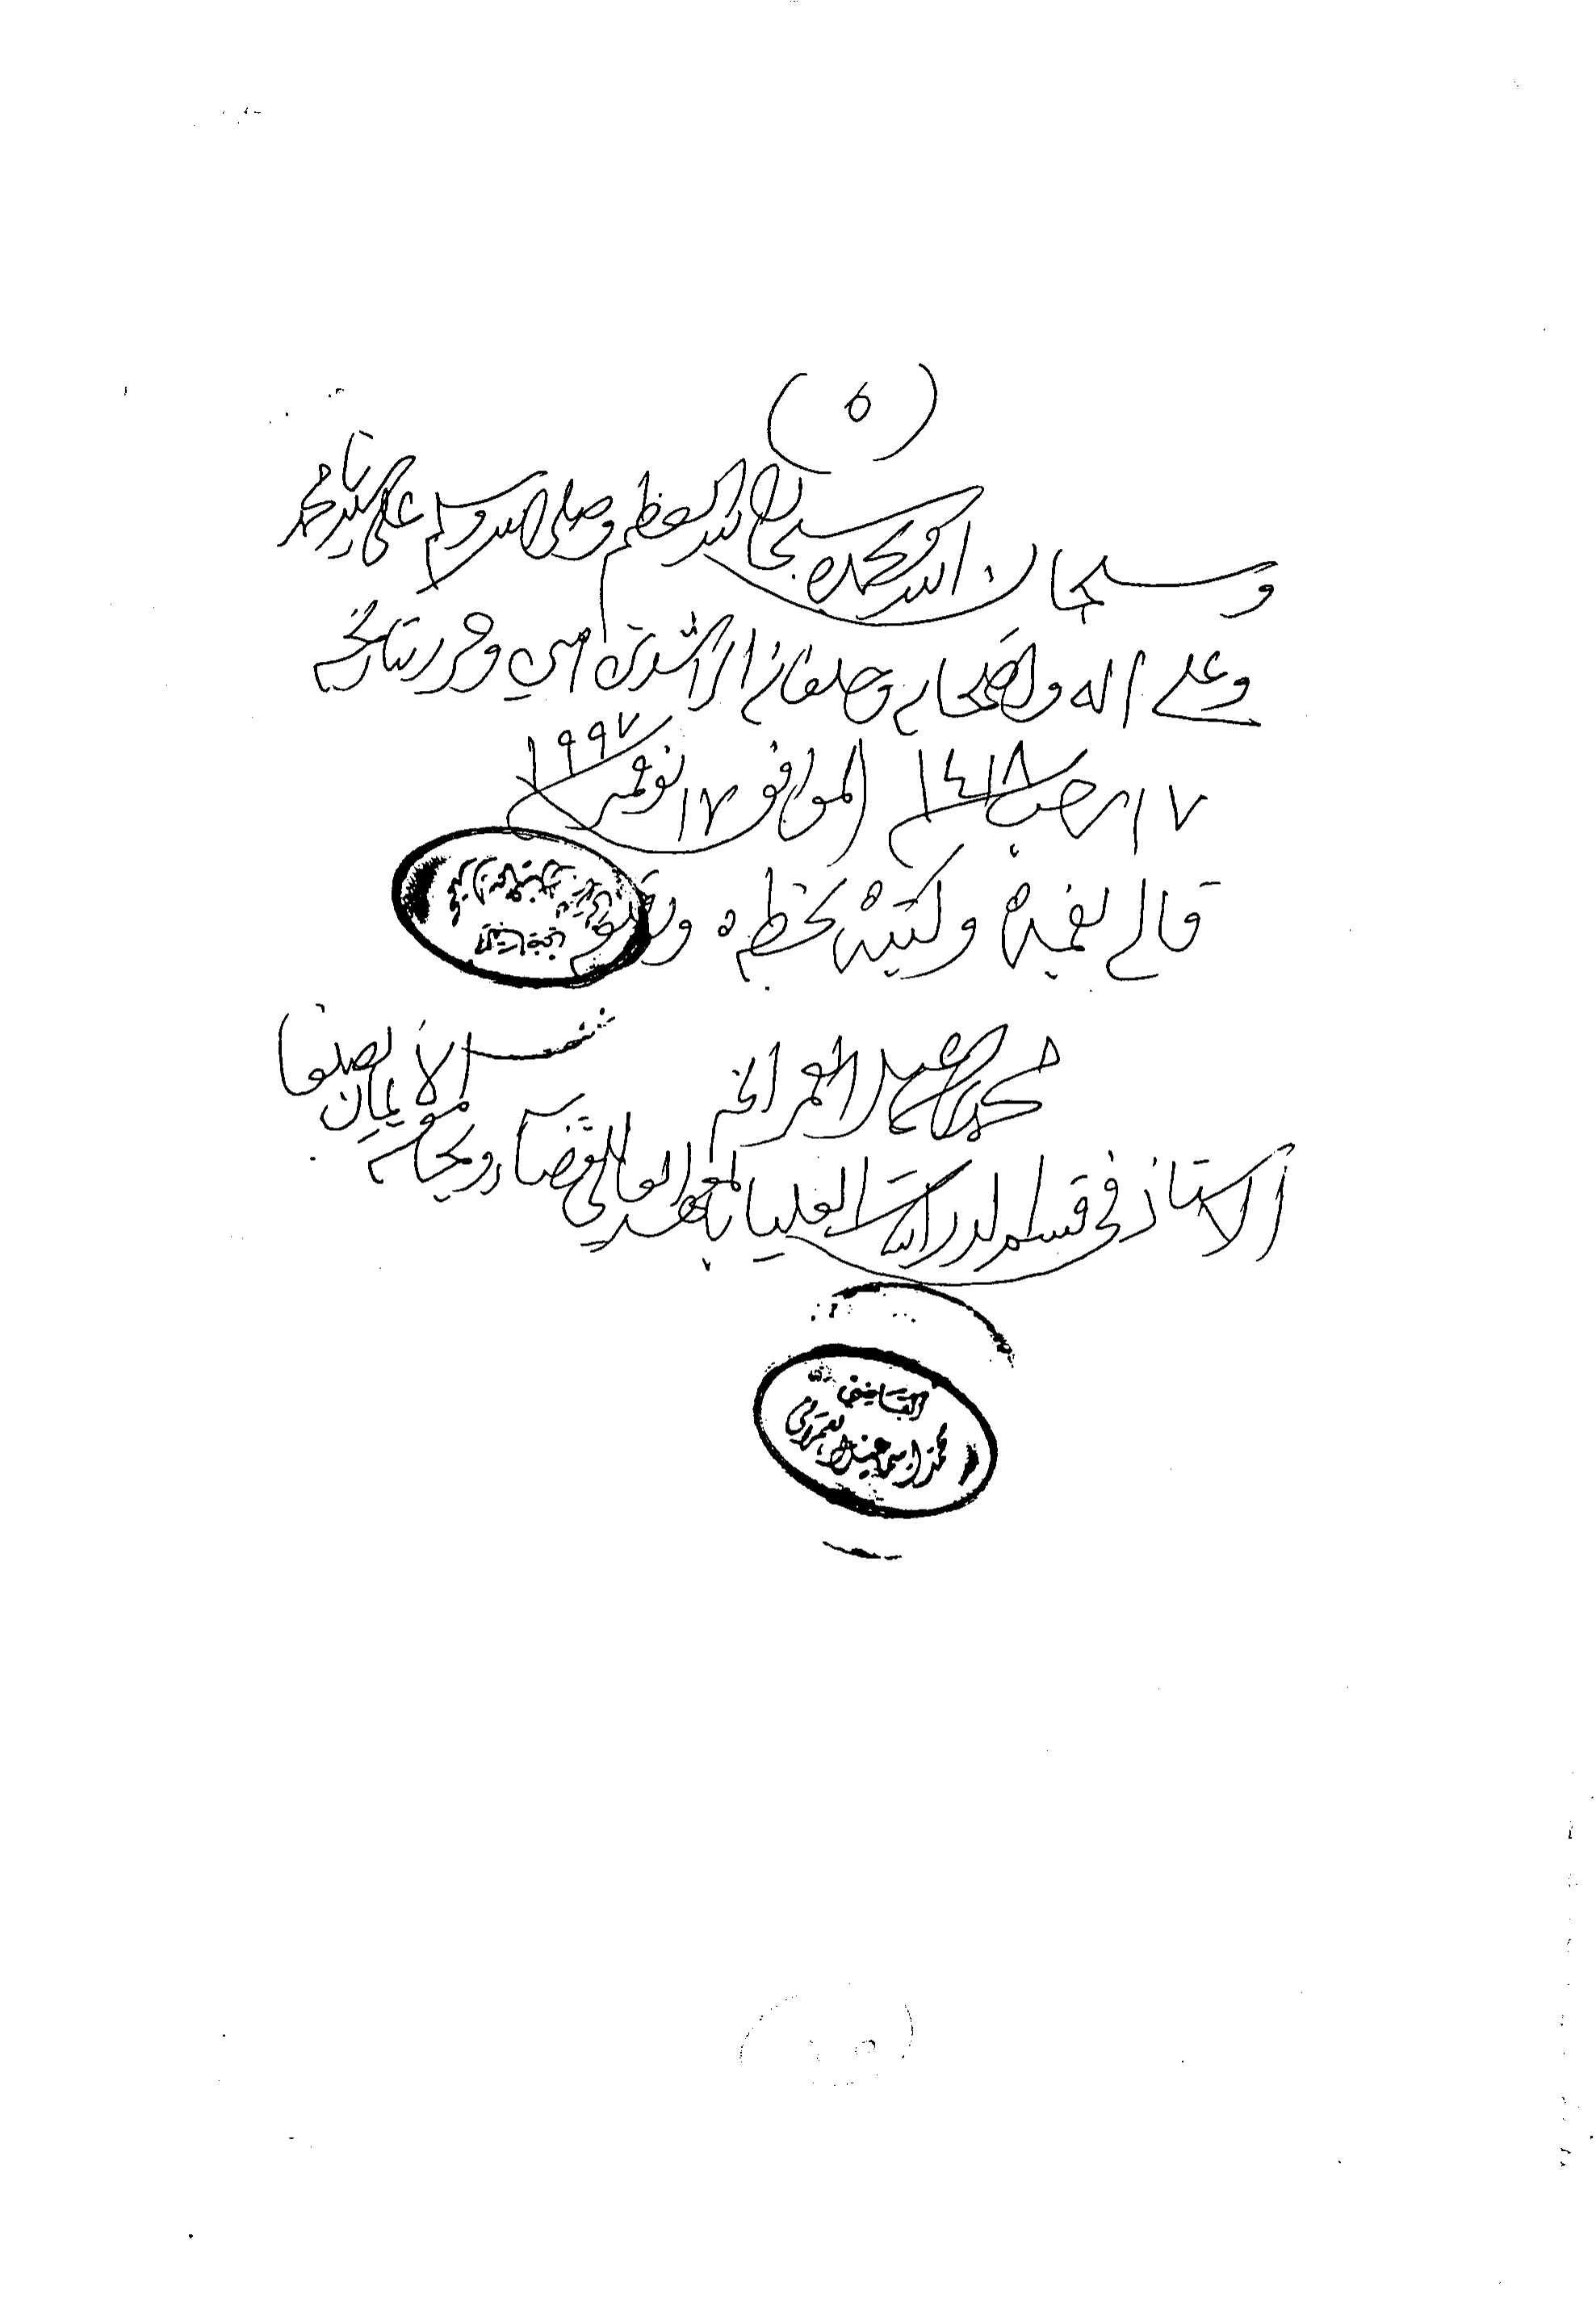 (٥)
وسبحان الله وبحمده سبحان الله العظيم وصلى الله وسلم على سيدنا محمد
وعلى اله واصحابه وخلفائه الراشدين امين وحرر بتاريخه
١٧ رجب ١٤١٨ الموافق ١٧ نوفمبر ١٩٩٧م
قاله بفمه وكتبه بخطه و
محمد بن اسماعيل العمراني
الاستاذ في قسم الدراسات العليا بالمعهد العالي للقضاء وبجامعة الايمان بصنعا
القاضي
محمد اسماعيل العمراني